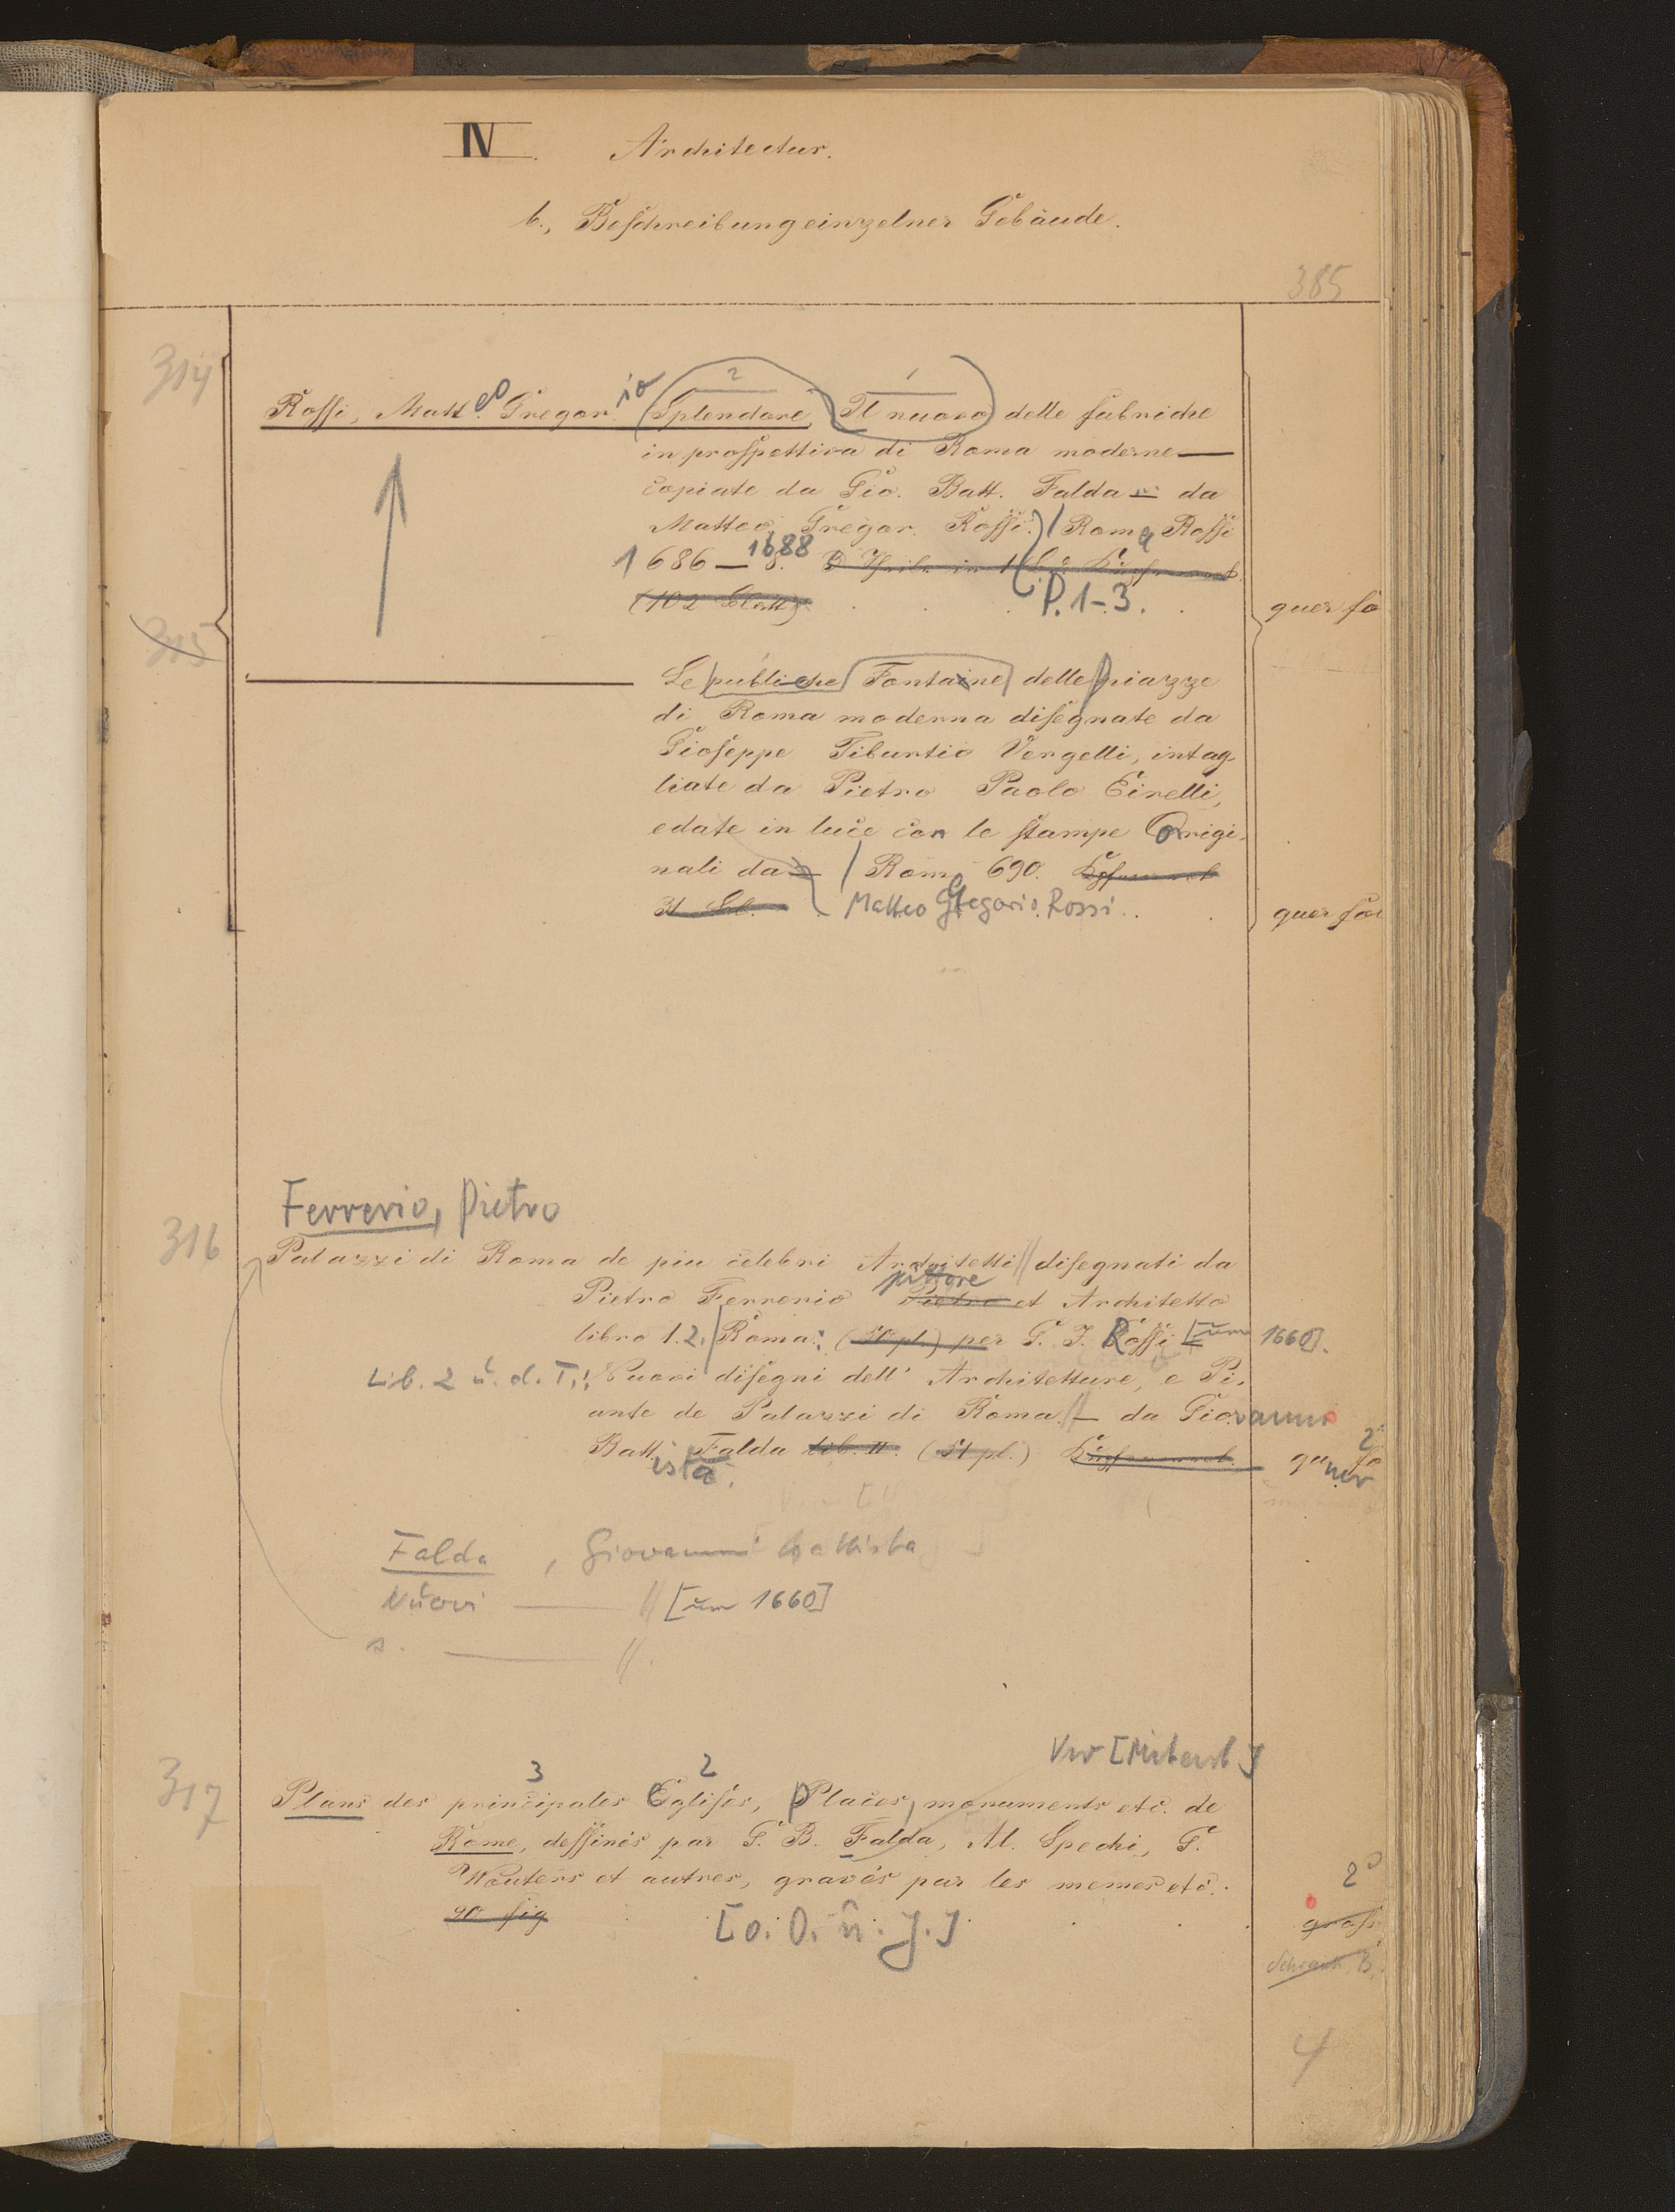 IV. Architectur.
b., Beschreibung einzelner Gebäude.
385
314
2 1
Rossi, Matteo Gregorio Splendore, Il nuovo delle fabriche
in prospettiva di Roma moderne —
copiate da Gio. Batt. Falda — da
Matteo Gregor. Rossi.) / Roma Rossi
1686 — 1688 8. 3 Theile in 1
(102 Blatt)
P. 1-3.
quer fo
315
Le publiche Fontaine delle piazze
di Roma moderna disegnate da
Gioseppe Tiburtio Vergelli, intag-
liate da Pietro Paolo Girelli,
edate in luce con le stampe Origi-
nali da — / Roma 690.
Matteo Gregorio Rossi
quer fol
Ferrerio, Pietro
316
Palazzi di Roma de piu celebri Architetti // disegnati da
Pietro Ferrerio Pietro pittore et Architetto
libro 1.2. / Roma: per G. J. Rossi [um 1660].
Lib. 2 u. d. T.: Nuovi disegni dell' Architetture, e Pi-
ante de Palazzi di Roma // — da Giovanni
Battista Falda Lib. II. (51 pl.)
quer 2° fo
Falda, Giovanni Battista
Nuovi — // [um 1660]
s. — //.
Verw [Mitarb.]
3 2
317
Plans des principales Eglises, Places, monuments etc. de
Rome, dessinés par G. B. Falda, Al. Spechi, G.
Wouters et autres, gravés par les memes etc.
90 fig
[o. O. u. J.]
2°
gross
Schrank B.
4